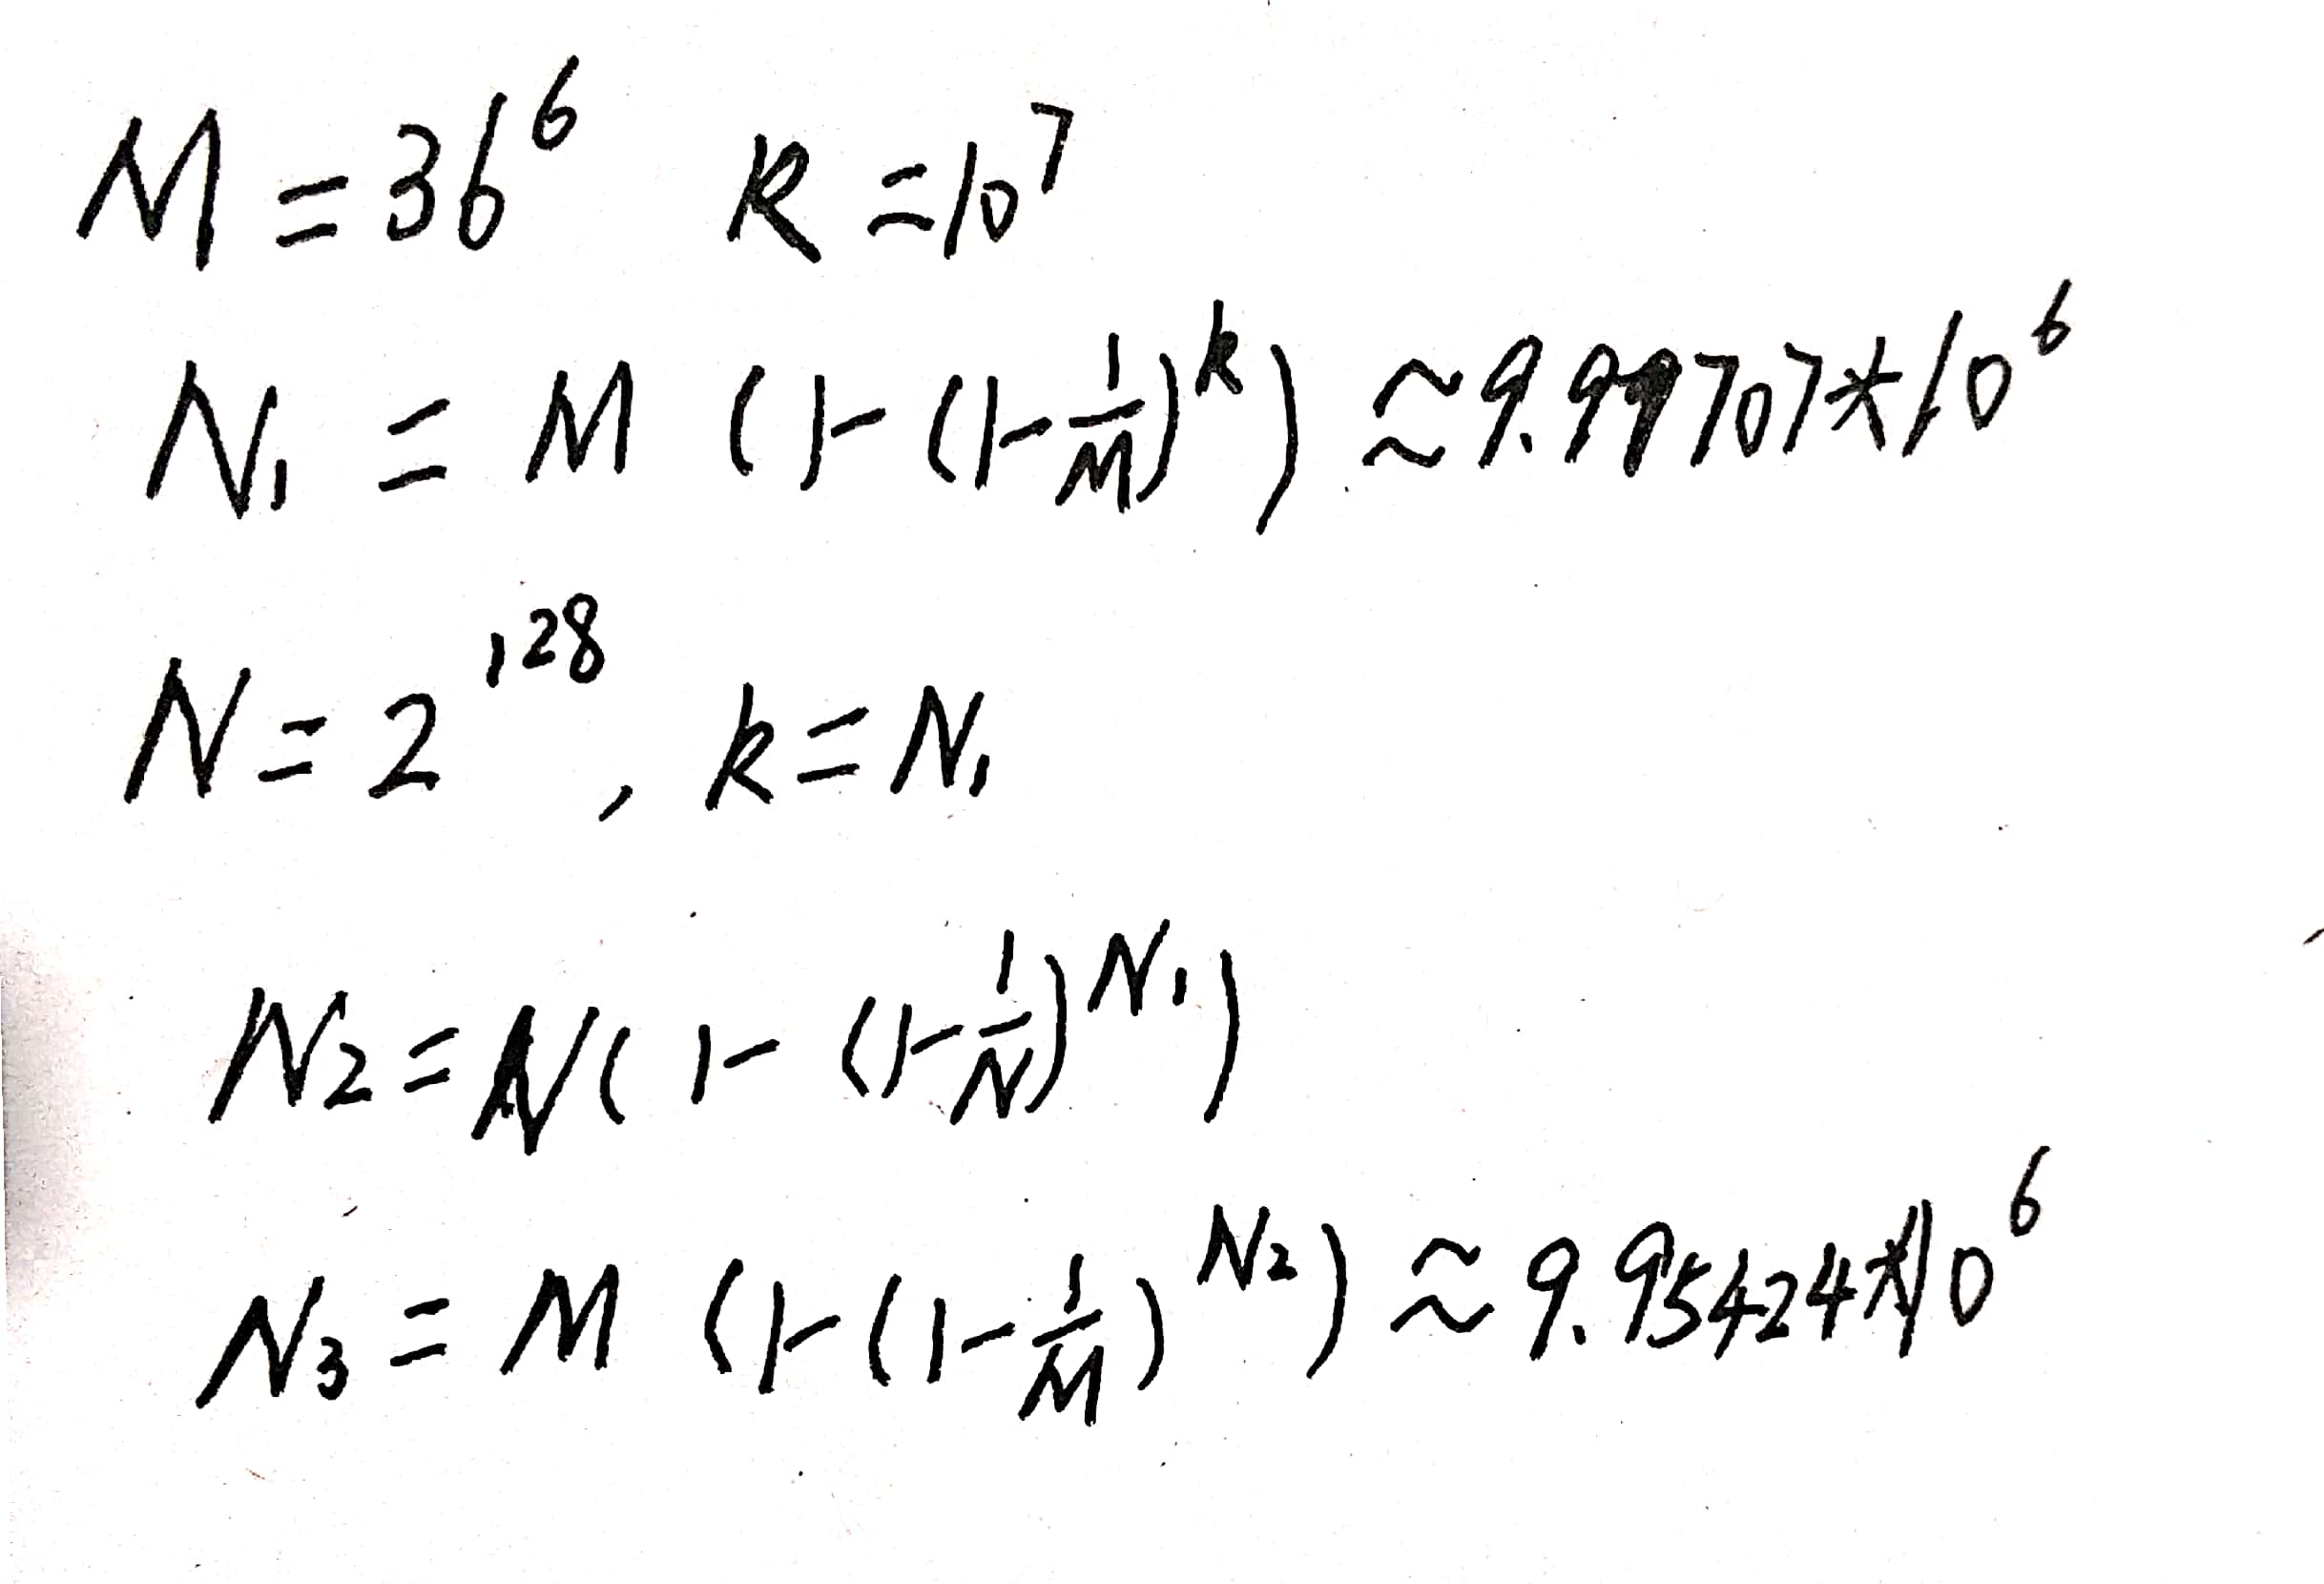 M = 36^6 K = 10^7
N₁ = M (1-(1-1/M)^k) ≈ 9.99707*10^6
N = 2^128, k = N₁
N₂ = N(1-(1-1/N)^N₁)
N₃ = M (1-(1-1/M)^N₂) ≈ 9.95424*10^6